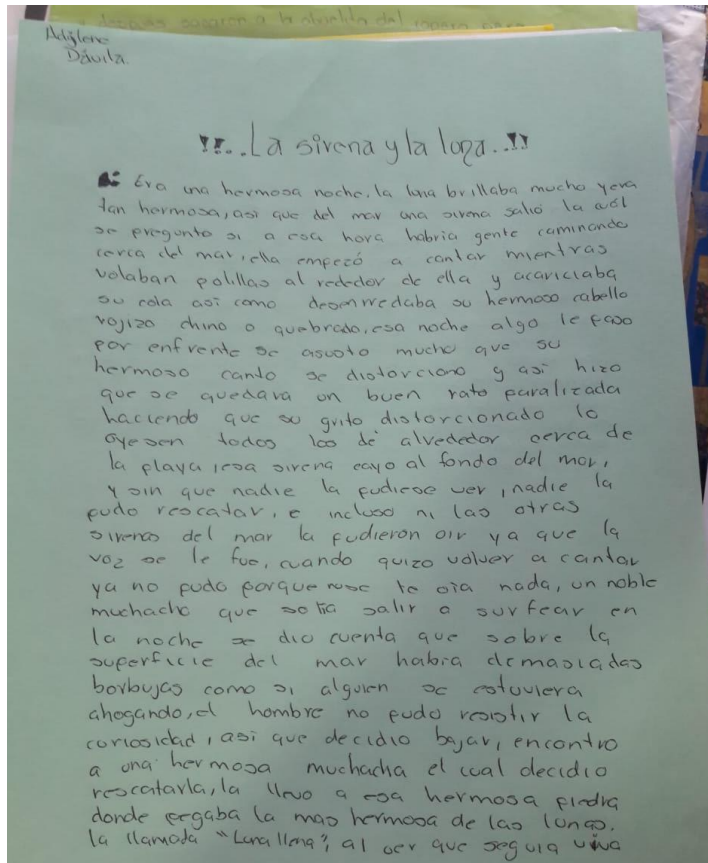 después sacaron a la abuelita del ropero para
Adylene
Dávila.
!!...La sirena y la luna..!!
Era una hermosa noche, la luna brillaba mucho y era
tan hermosa, asi que del mar una sirena salió la cuál
se pregunto si a esa hora habria gente caminando
cerca del mar, ella empezó a cantar mientras
volaban polillas al rededor de ella y acariciaba
su cola asi como desenrredaba su hermoso cabello
rojizo chino o quebrado, esa noche algo le paso
por enfrente se asusto mucho que su
hermoso canto se distorciono y asi hizo
que se quedara un buen rato paralizada
haciendo que su grito distorcionado lo
oyesen todos los de alrededor cerca de
la playa, esa sirena cayo al fondo del mar,
y sin que nadie la pudiese ver, nadie la
pudo rescatar, e incluso ni las otras
sirenas del mar la pudieron oir ya que la
voz se le fue, cuando quizo volver a cantar
ya no pudo porque no se le oia nada, un noble
muchacho que solia salir a surfear en
la noche se dio cuenta que sobre la
superficie del mar habia demasiadas
borbujas como si alguien se estuviera
ahogando, el hombre no pudo resistir la
curiosidad, asi que decidio bajar, encontro
a una hermosa muchacha el cual decidio
rescatarla, la llevo a esa hermosa piedra
donde pegaba la mas hermosa de las lunas.
la llamada "Luna llena", al ver que seguia viva